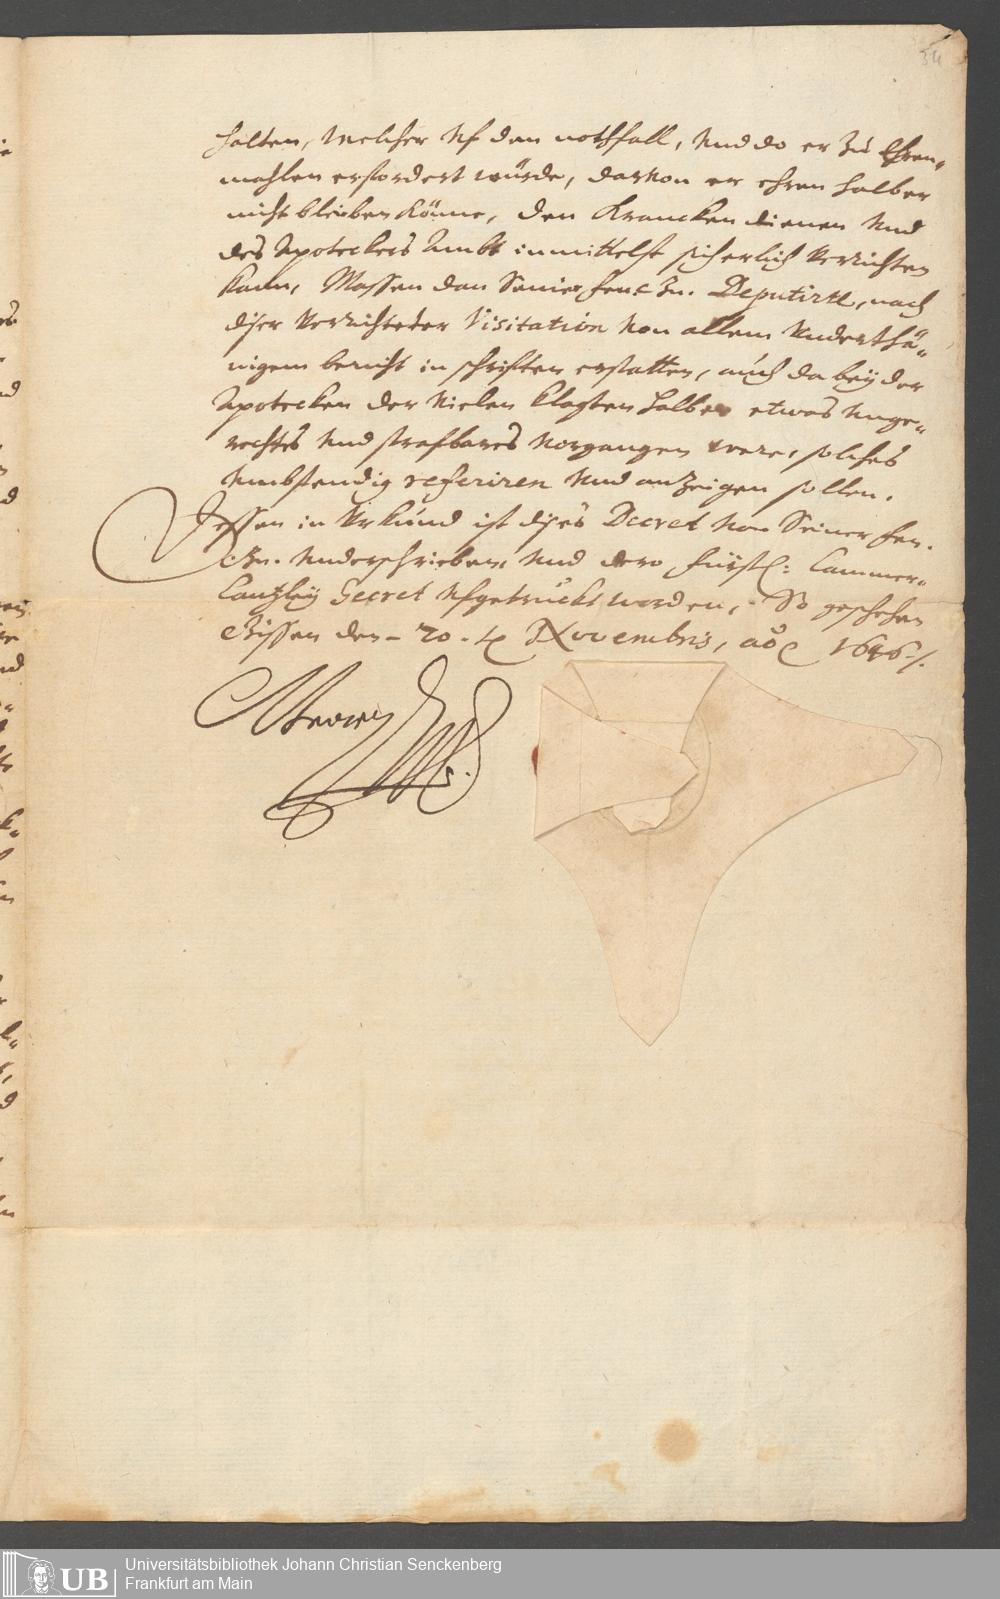 34
halten, welcher uf den nothfall, und do er zu Ehren-
mahlen erfordert würde, darvon er ehren halber
nicht bleiben könne, den Krancken dienen und
des Apoteckers Ambt inmittelst sicherlich verrichten
kann, Massen dan Seiner fürstl. Gn. Deputirte, nach
diser verrichteter Visitation von allem underthä-
nigem bericht in schriften erstatten, auch da bey der
Apotecken der vielen klagten halber etwas unge-
rechts und strafbares vorgangen were, solches
umbstendig referiren und anzeigen sollen.
Dessen in Urkund ist dises Decret von Seiner fr.
Gn. underschrieben, und dero fürstl: Cammer-
Canzley Secret ufgetruckt worden, So geschehen
Giessen den 20. Novembris, ao 1646.
Georg
Universitätsbibliothek Johann Christian Senckenberg
UB Frankfurt am Main